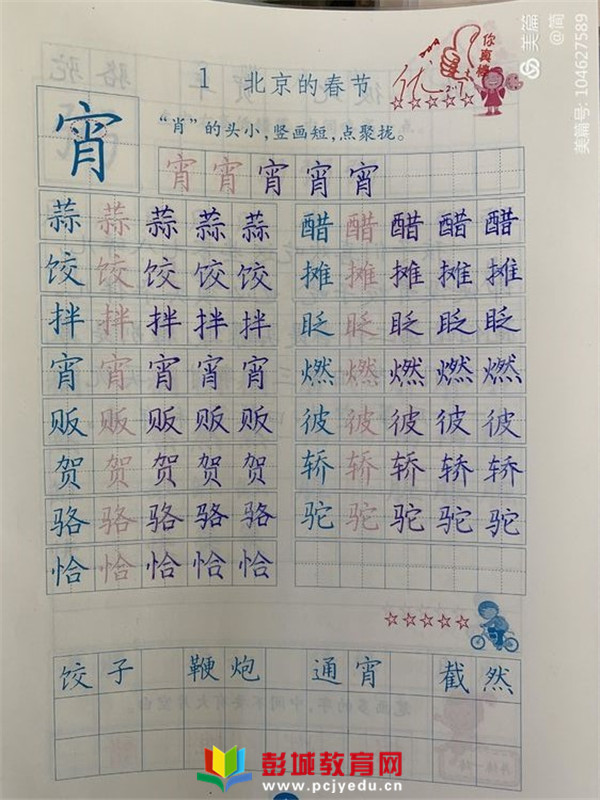 你真棒
优
1 北京的春节
“肖”的头小，竖画短，点聚拢。
宵 宵 宵 宵 宵 宵
蒜 蒜 蒜 蒜 蒜 醋 醋 醋 醋 醋
饺 饺 饺 饺 饺 摊 摊 摊 摊 摊
拌 拌 拌 拌 拌 眨 眨 眨 眨 眨
宵 宵 宵 宵 宵 燃 燃 燃 燃 燃
贩 贩 贩 贩 贩 彼 彼 彼 彼 彼
贺 贺 贺 贺 贺 轿 轿 轿 轿 轿
骆 骆 骆 骆 骆 驼 驼 驼 驼 驼
恰 恰 恰 恰 恰
饺子 鞭炮 通宵 截然
彭城教育网
www.pcjyedu.cn
美篇 @简
美篇号: 104627589